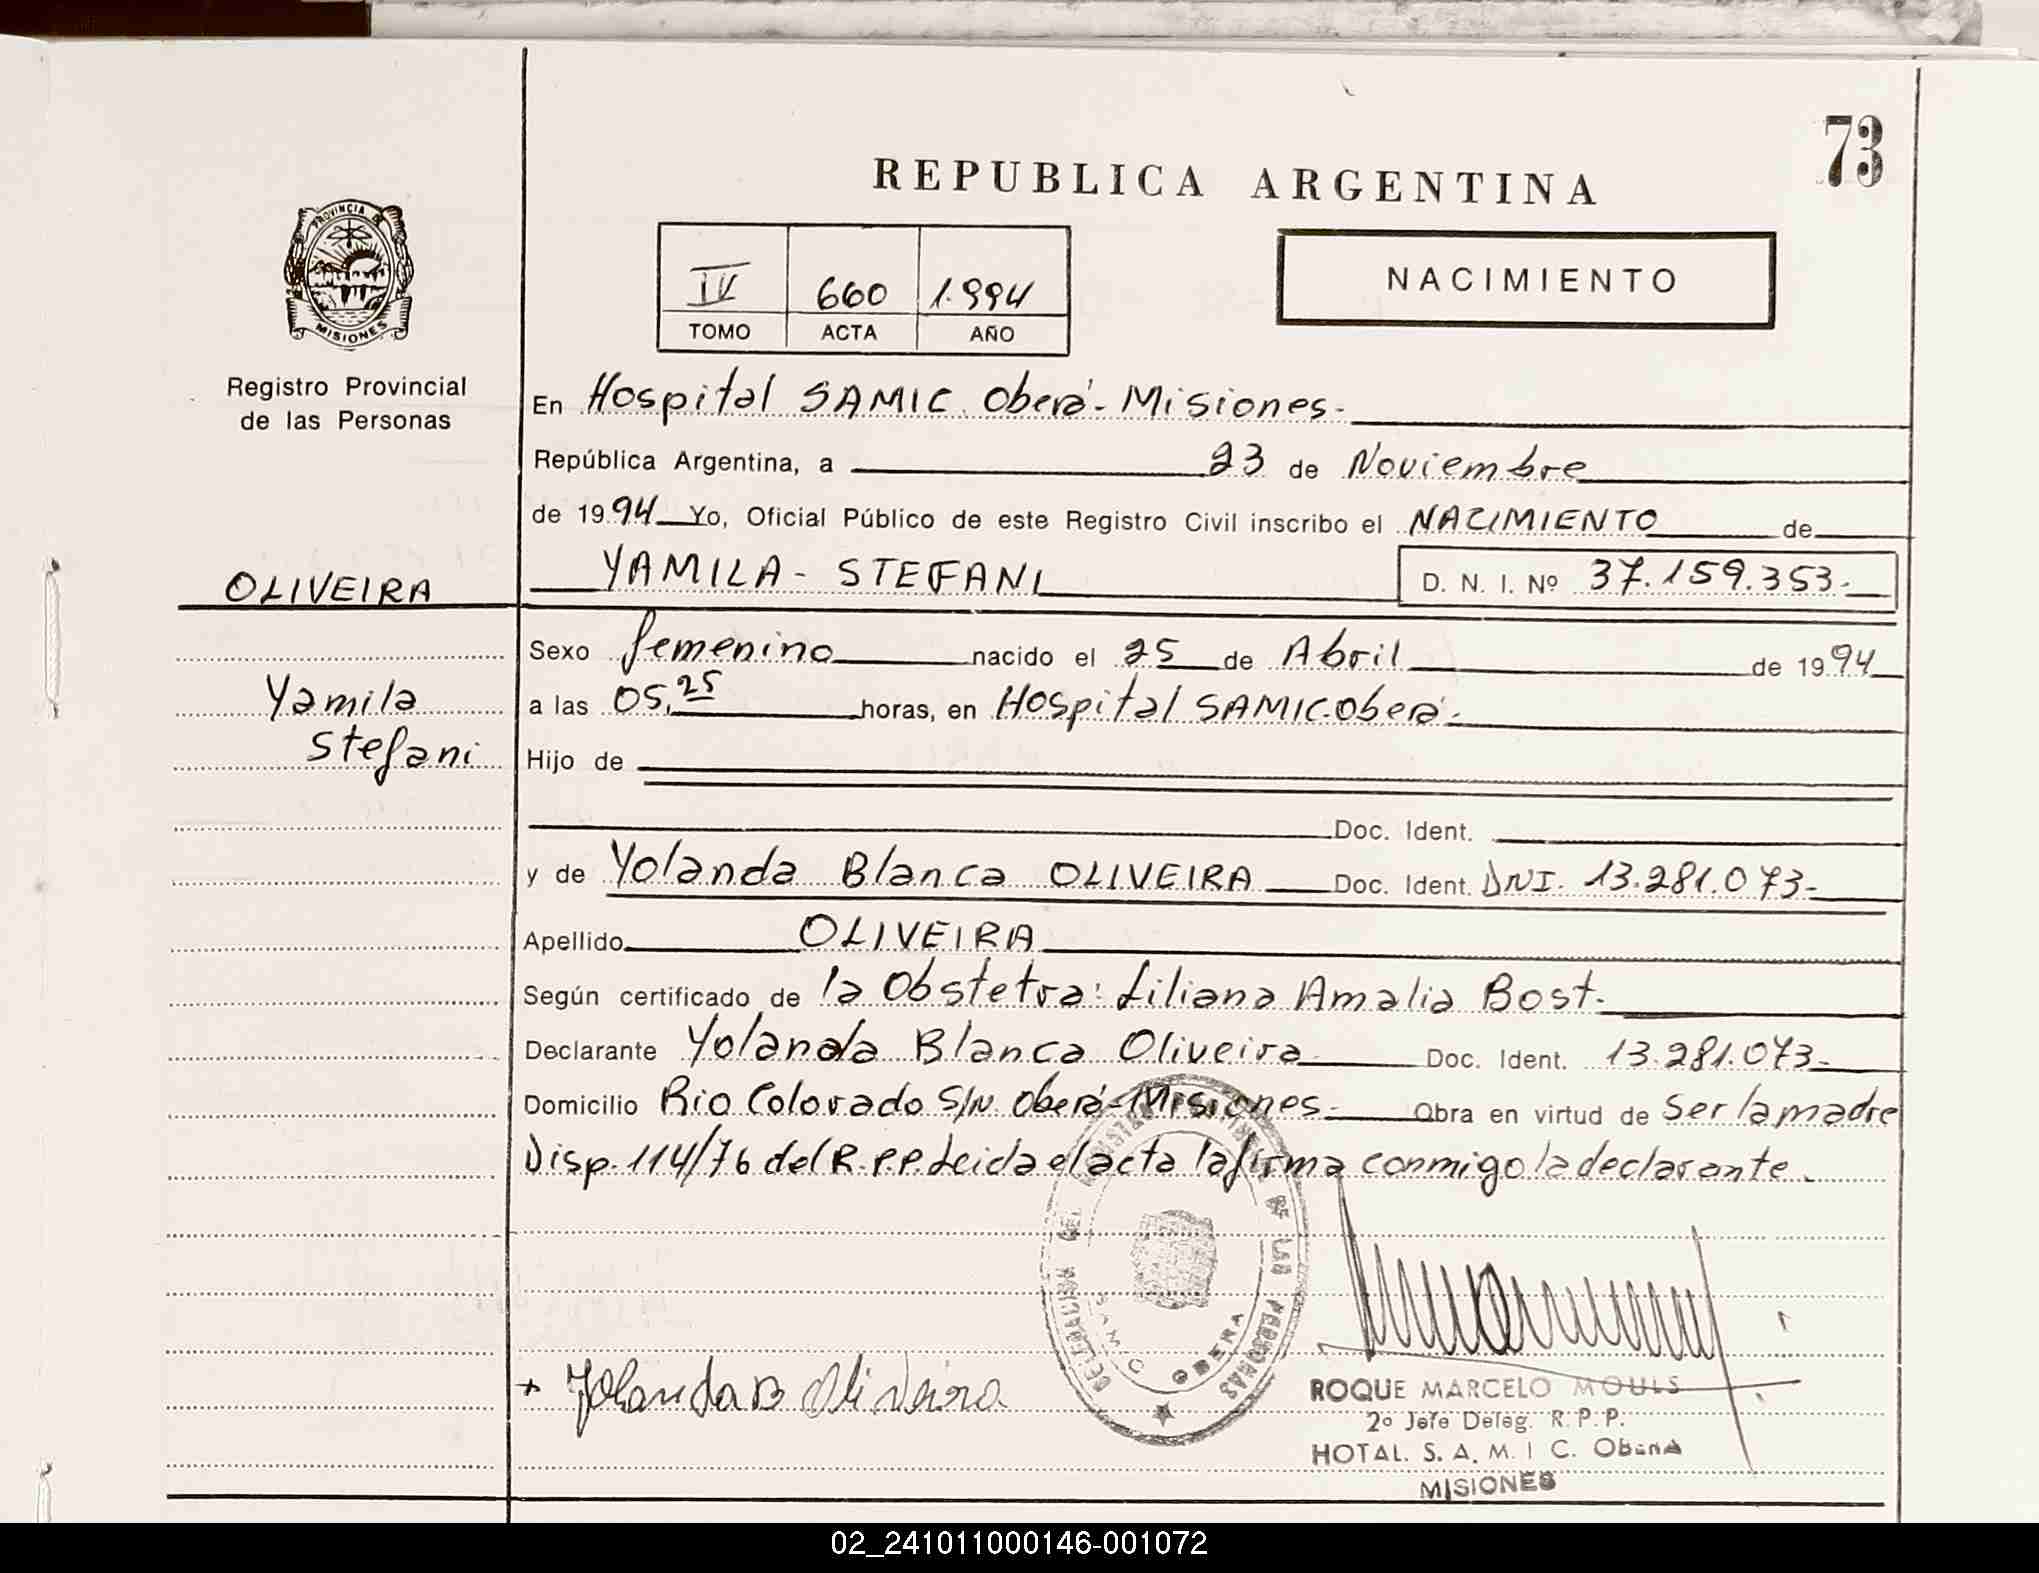 73
REPUBLICA ARGENTINA
PROVINCIA DE
MISIONES
IV 660 1.994
TOMO ACTA AÑO
NACIMIENTO
Registro Provincial
de las Personas
En Hospital SAMIC Oberá - Misiones.
República Argentina, a 23 de Noviembre
de 1994 Yo, Oficial Público de este Registro Civil inscribo el NACIMIENTO de
OLIVEIRA
YAMILA - STEFANI D. N. I. Nº 37.159.353.-
Sexo femenino nacido el 25 de Abril de 1994
Yamila
Stefani
a las 05,25 horas, en Hospital SAMIC Oberá.
Hijo de
Doc. Ident.
y de Yolanda Blanca OLIVEIRA Doc. Ident. DNI. 13.281.073-
Apellido OLIVEIRA
Según certificado de la Obstetra: Liliana Amalia Bost.
Declarante Yolanda Blanca Oliveira Doc. Ident. 13.281.073-
Domicilio Rio Colorado S/N. Oberá - Misiones.- Obra en virtud de Ser la madre
Disp. 114/76 del R.P.P. Leida el acta la firma conmigo la declarante.
DELEGACION DEL REGISTRO DE LAS PERSONAS
SAMIC OBERA
+ Yolanda B Oliveira
ROQUE MARCELO MOULS
2º Jefe Deleg. R. P. P.
HOTAL. S. A. M. I C. Oberá
MISIONES
02_241011000146-001072